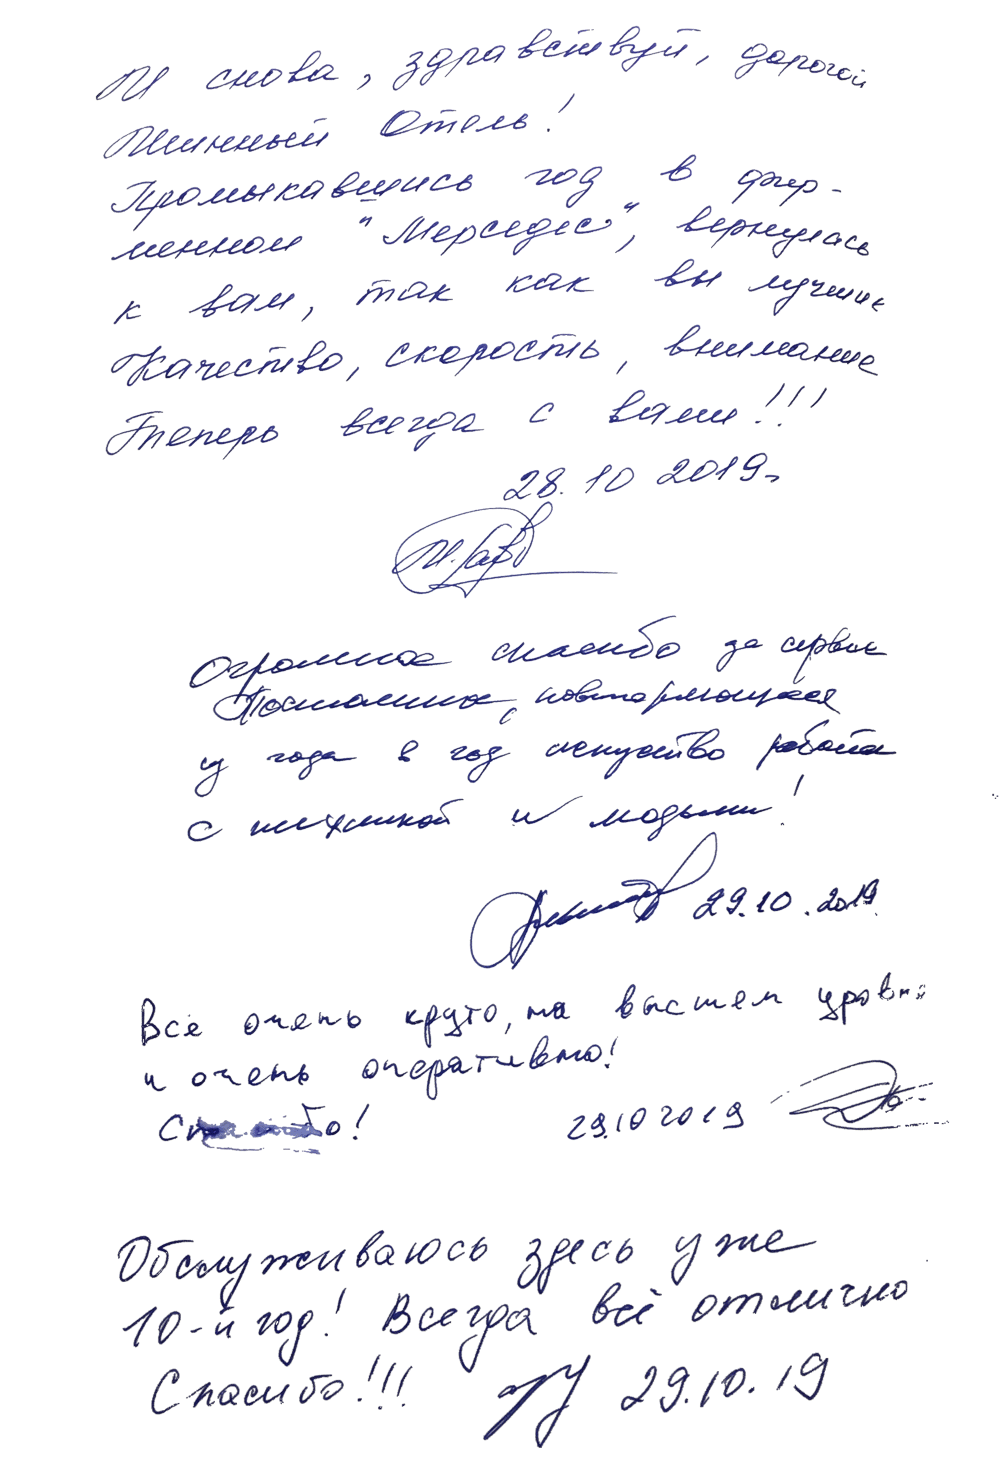 И снова, здравствуй, дорогой
Шинный Отель!
Промыкавшись год в фир-
менном "Мерседес", вернулась
к вам, так как вы лучшие
Качество, скорость, внимание
Теперь всегда с вами!!!
28.10 2019г
Огромное спасибо за сервис
Постоянное, повторяющееся
из года в год искусство работы
с техникой и людьми!
29.10.2019
Всё очень круто, на высшем уровне
и очень оперативно!
Спасибо!
29.10 2019
Обслуживаюсь здесь уже
10-й год! Всегда всё отлично
Спасибо!!! 29.10.19